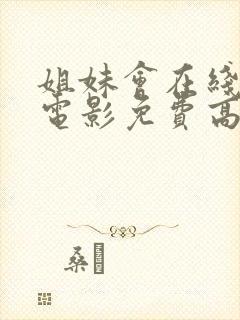 姐妹會在綫
電影免費高
桑